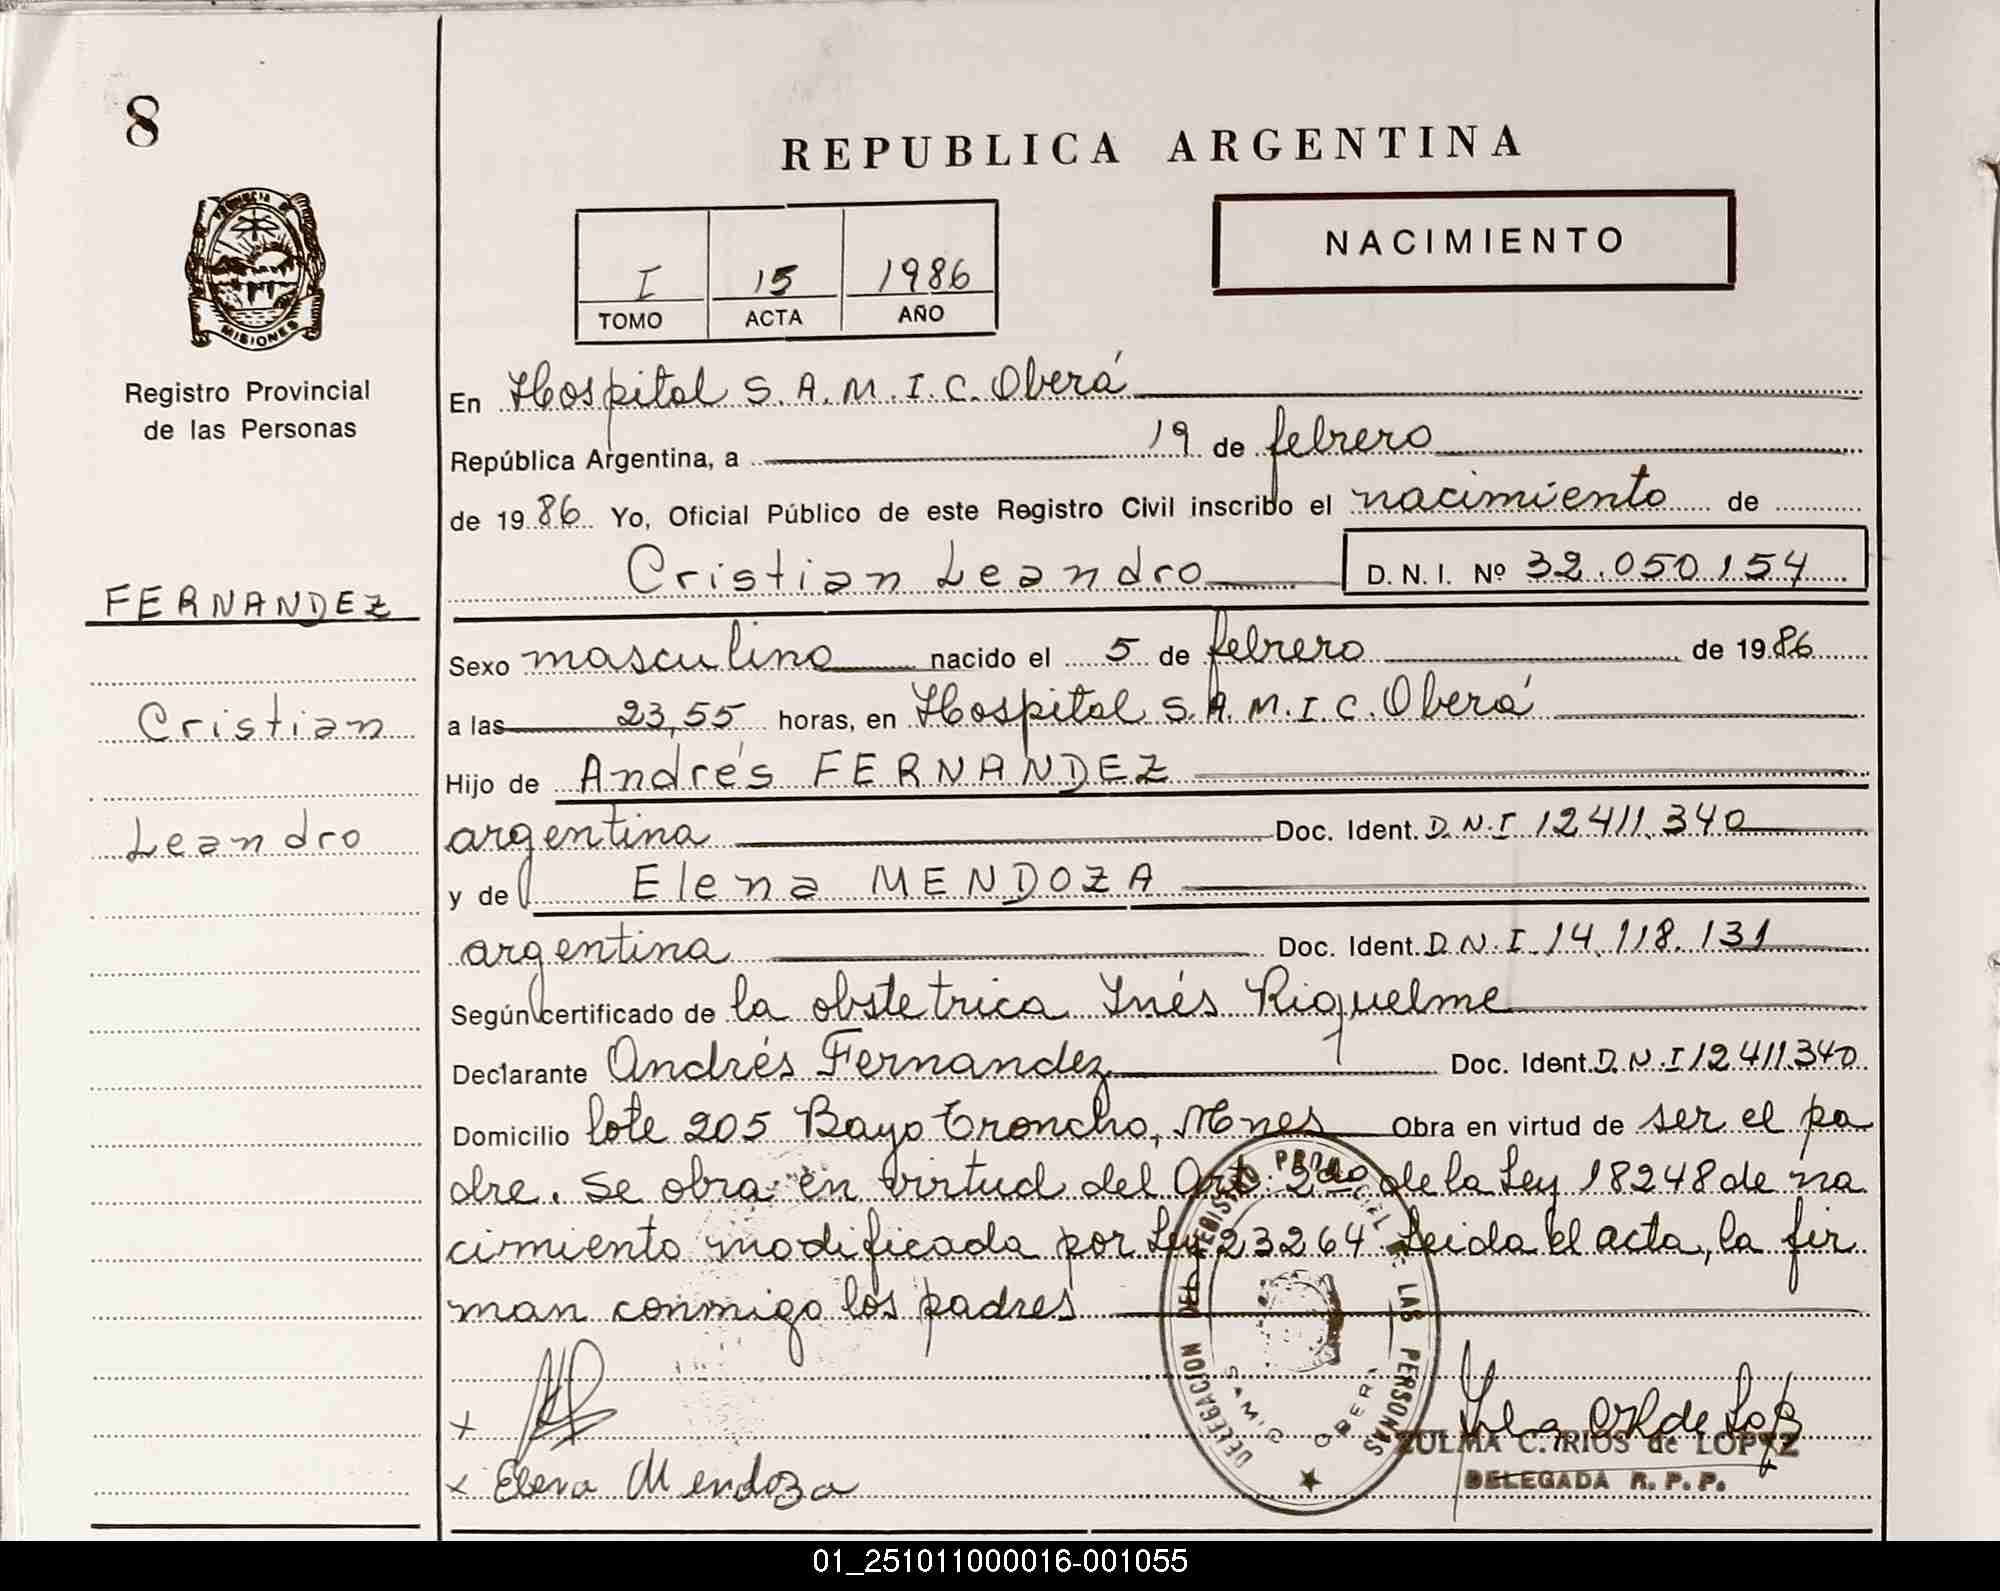 8
REPUBLICA ARGENTINA
NACIMIENTO
I 15 1986
TOMO ACTA AÑO
PROVINCIA DE
MISIONES
Registro Provincial
de las Personas
FERNANDEZ
Cristian
Leandro
En Hospital S.A.M.I.C. Oberá
República Argentina, a 19 de febrero
de 1986 Yo, Oficial Público de este Registro Civil inscribo el nacimiento de
Cristian Leandro D.N.I. Nº 32.050.154
Sexo masculino nacido el 5 de febrero de 1986
a las 23,55 horas, en Hospital S.A.M.I.C. Oberá
Hijo de Andrés FERNANDEZ
argentina Doc. Ident. D.N.I 12.411.340
y de Elena MENDOZA
argentina Doc. Ident. D.N.I 14.118.131
Según certificado de la obstetrica Inés Riquelme
Declarante Andrés Fernandez Doc. Ident. D.N.I 12.411.340
Domicilio lote 205 Bayo Troncho, Mnes Obra en virtud de ser el pa
dre. Se obra en virtud del Art. 2do de la Ley 18248 de na
cimiento modificada por Ley 23264 Leida el acta, la fir
man conmigo los padres
DELEGACION DEL REGISTRO PROVINCIAL DE LAS PERSONAS
SAMIC OBERA
x
x Elena Mendoza
ZULMA C. RIOS de LOPEZ
DELEGADA R.P.P.
01_251011000016-001055